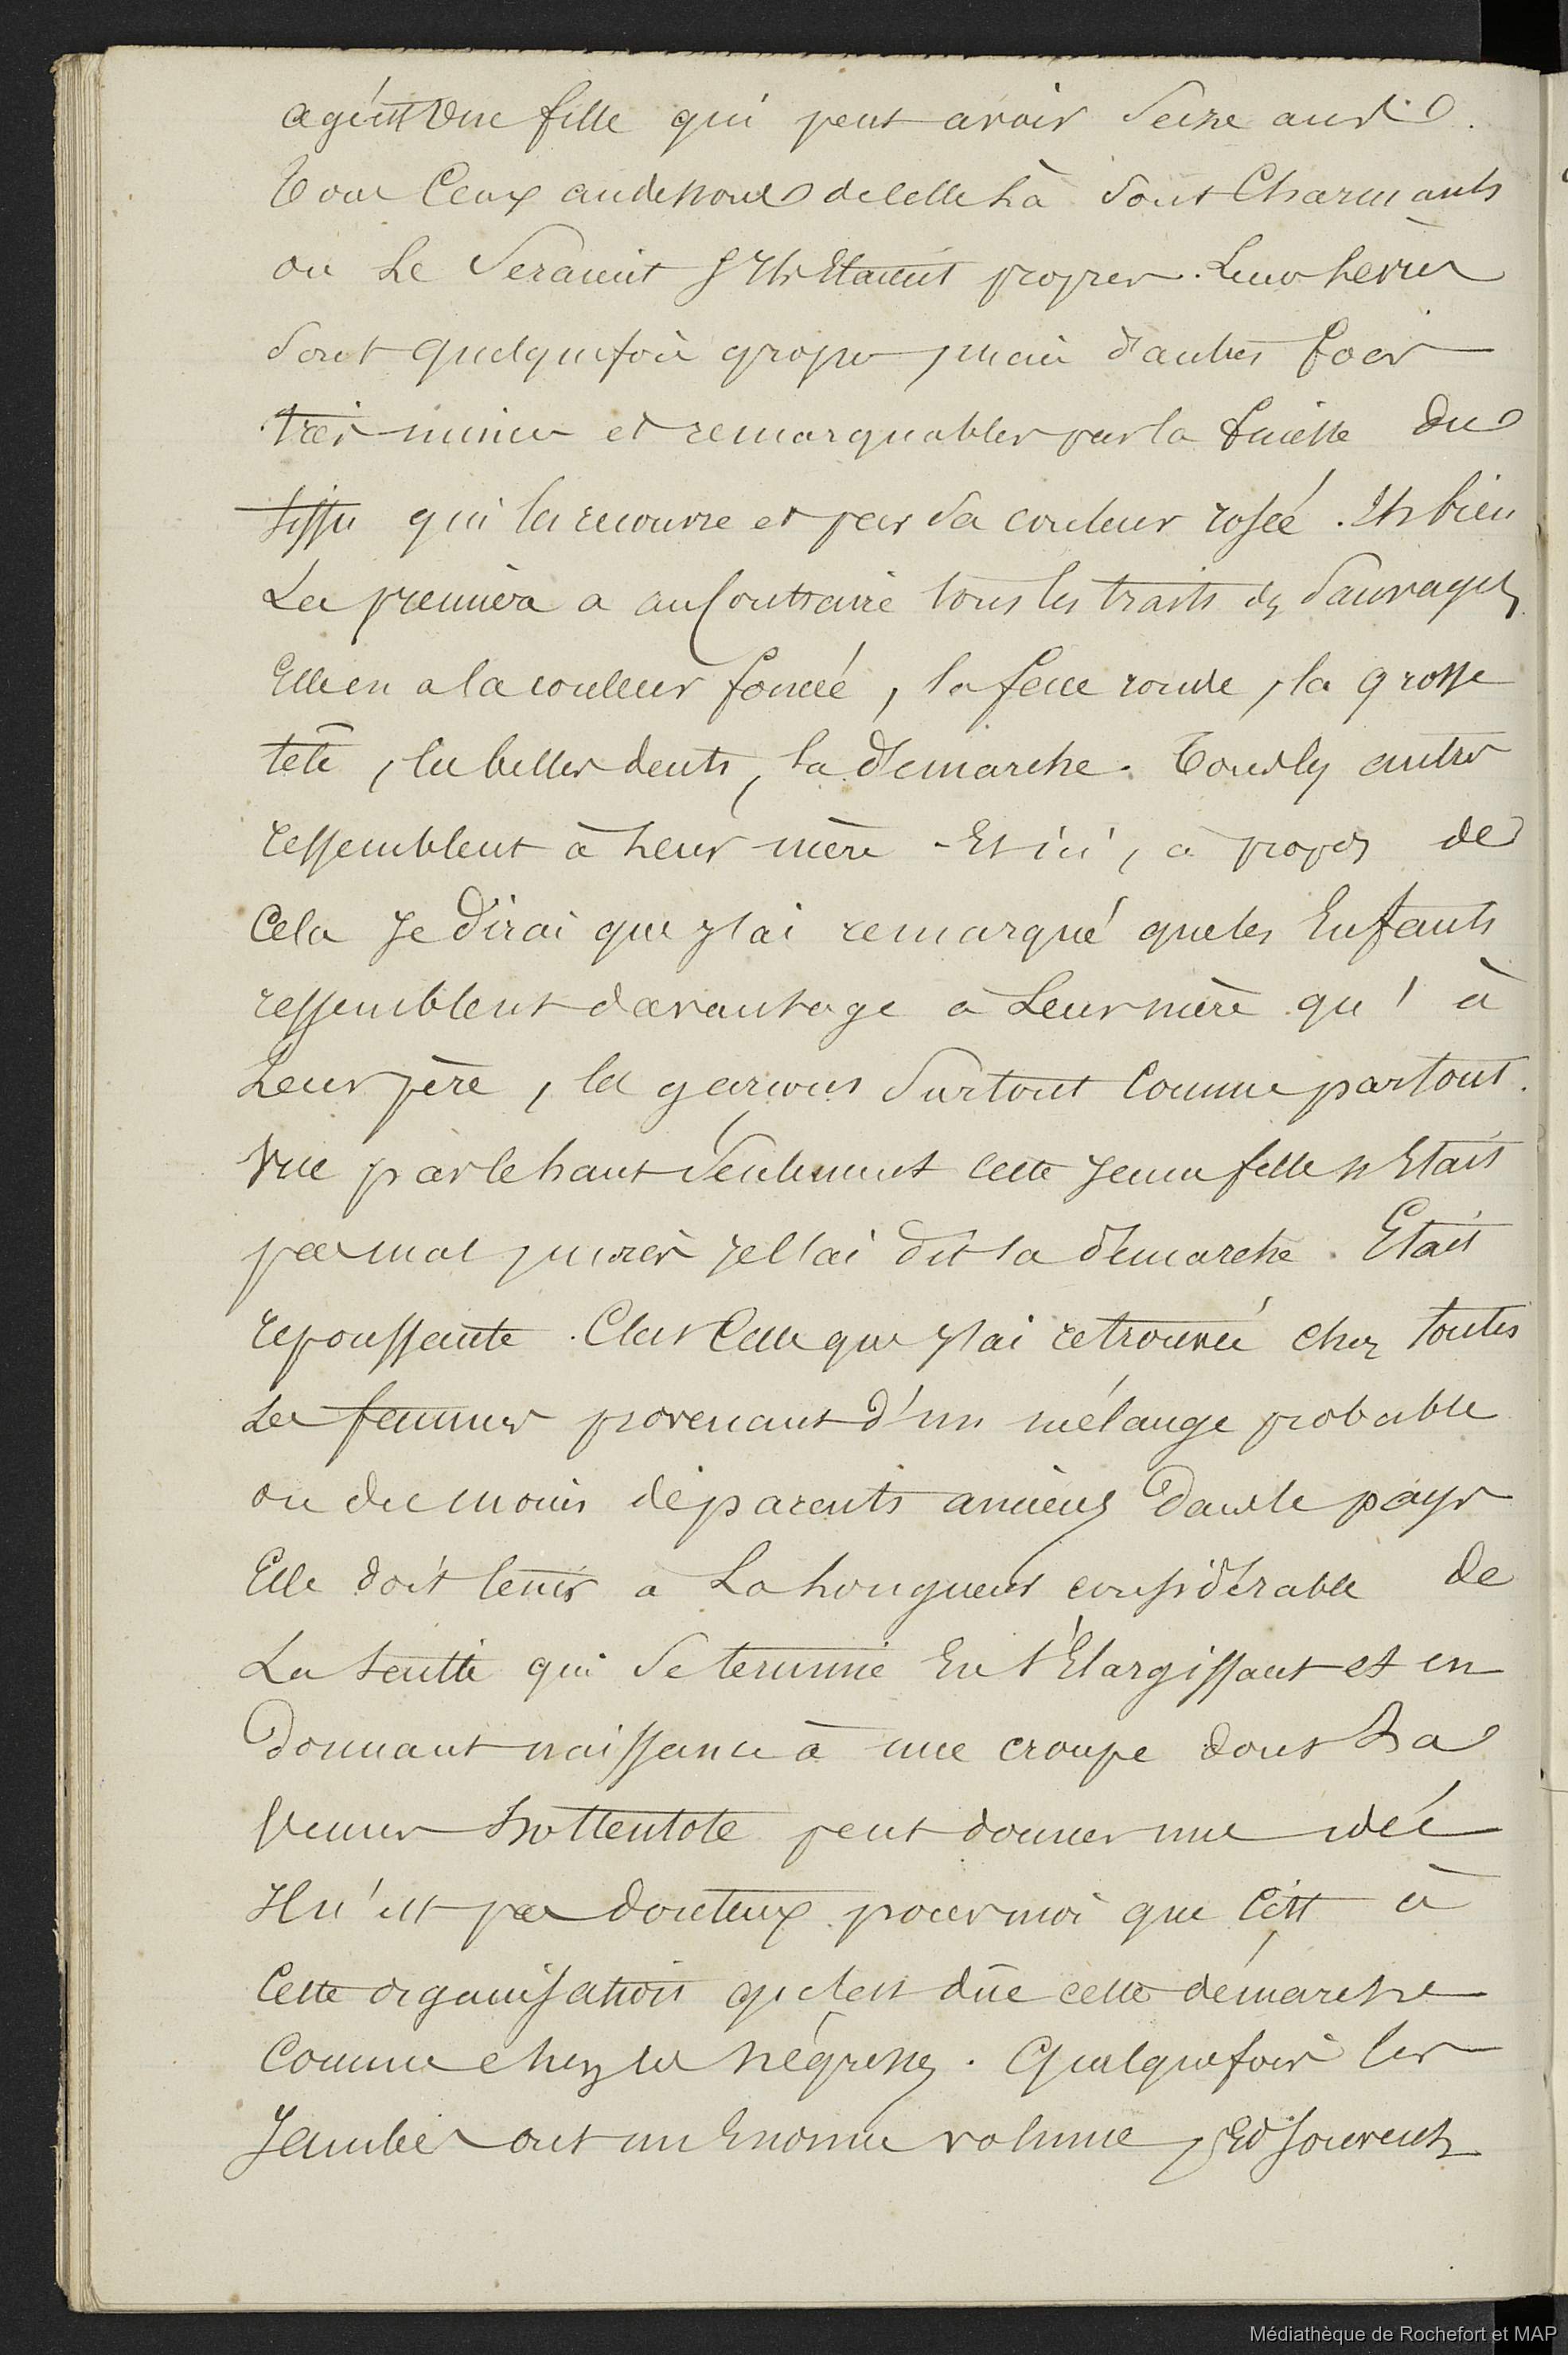 agée est une fille qui peut avoir Seize ans.
Tous Ceux au dessous de celle là sont Charmants
ou Le Seraient S'Ils Etaient propres. Leurs levres
Sont quelquefois grosses, mais d'autres fois
très minces et remarquables par la finesse du
tissu qui les recouvre et par sa couleur rosée. Eh bien
La première a au Contraire tous les traits des Sauvages
Elle en a la couleur foncée, la face ronde, la grosse
tête, les belles dents, la démarche. Tous les autres
ressemblent à Leur mère - Et ici, à propos de
Cela Je dirai que J'ai remarqué que les Enfants
ressemblent davantage à Leur mère qu'à
Leur père, les garçons Surtout Comme partout.
Vue par le haut Seulement cette Jeune fille n'Etait
pas mal, mais Je l'ai dit la démarche. Etait
repoussante. C'est Celle que J'ai retrouvée chez toutes
Les femmes provenant d'un mélange probable
ou du moins de parents anciens Dans le pays
Elle doit tenir à La Longueur considérable de
La taille qui Se termine En S'Elargissant et en
Donnant naissance à une croupe dont La
Venus hottentote peut donner une idée
Il n'est pas douteux pour moi que C'est à
Cette organisation qu'est dûe cette démarche
Comme chez les négresses. Quelquefois les
Jambes ont un Enorme volume, Et Souvent